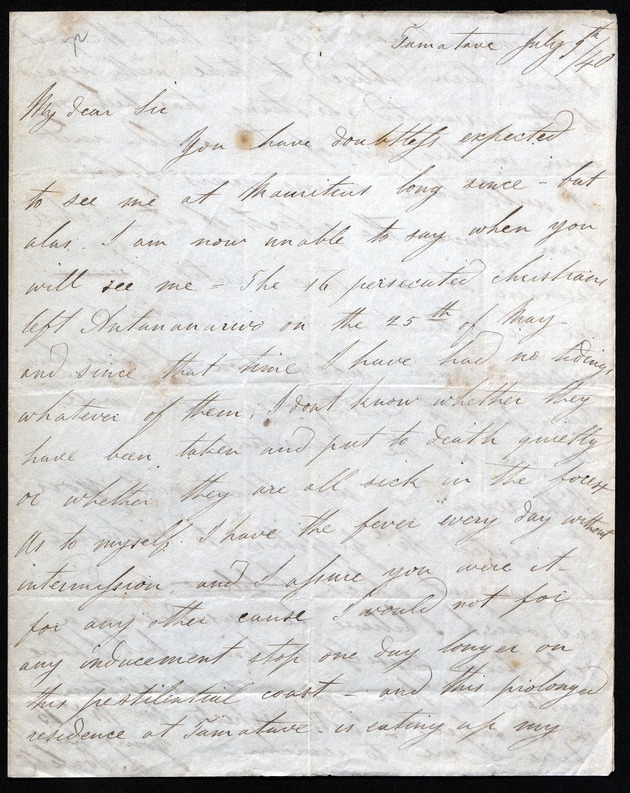 Tamatave July 9th/40
My dear Sir
You have doubtless expected
to see me at Mauritius long since - but
alas. I am now unable to say when you
will see me - The 16 persecuted Christians
left Antananarivo on the 25th of May
and since that time I have had no tidings
whatever of them; I dont know whether they
have been taken and put to death quietly
or whether they are all sick in the forest
As to myself I have the fever every day without
intermission, and I assure you were it
for any other cause I would not for
any inducement stop one day longer on
this pestilential coast - and this prolonged
residence at Tamatave - is eating up my